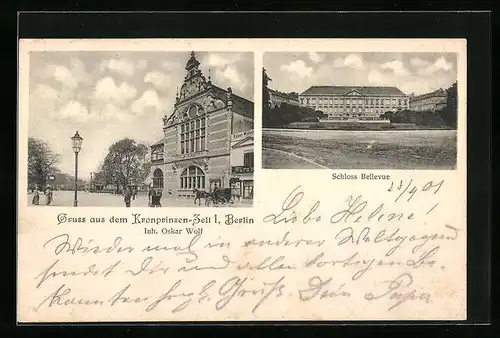 Schloss Bellevue
Gruss aus dem Kronprinzen-Zelt I, Berlin
Inh. Oskar Wolf
23/4 01
Liebe Helene!
Wieder mal in anderer Weltgegend
sendet Dir und allen dortigen Be-
kannten herzl. Grüße Dein